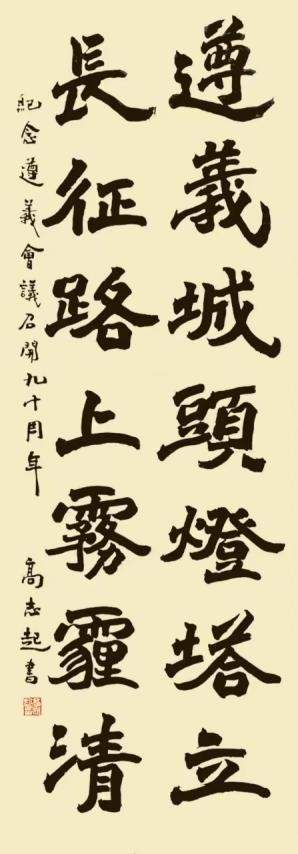 遵義城頭燈塔立
長征路上霧霾清
紀念遵義會議召開九十周年
高志起書